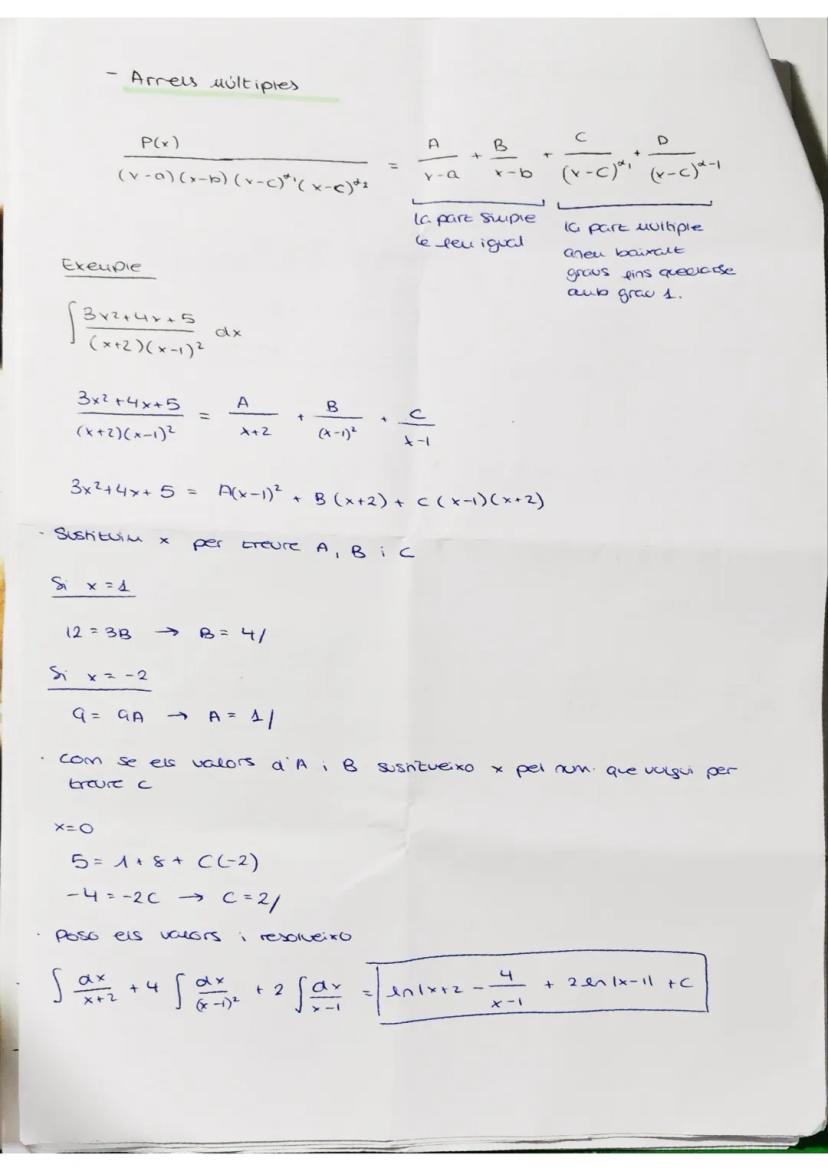 - Arrels múltiples
P(x) / (x-a)(x-b)(x-c)^α1(x-c)^α2 = A/(x-a) + B/(x-b) + C/(x-c)^α1 + D/(x-c)^α-1
la part simple
le feu igual
la part multiple
aneu baixant
graus fins quedar-se
amb grau 1.
Exemple
∫ (3x2+4x+5)/((x+2)(x-1)²) dx
(3x²+4x+5)/((x+2)(x-1)²) = A/(x+2) + B/(x-1)² + C/(x-1)
3x²+4x+5 = A(x-1)² + B(x+2) + C(x-1)(x+2)
· Sustituim x per treure A, B i C
Si x=1
12=3B → B=4/
Si x=-2
9=9A → A=1/
· Com se els valors d'A i B sustitueixo x pel num. que vulgui per
treure C
x=0
5=1+8+C(-2)
-4=-2C → C=2/
· Poso els valors i resolveixo
∫ dx/(x+2) + 4 ∫ dx/(x-1)² + 2 ∫ dx/(x-1) = ln|x+2 - 4/(x-1) + 2 ln|x-1| + C